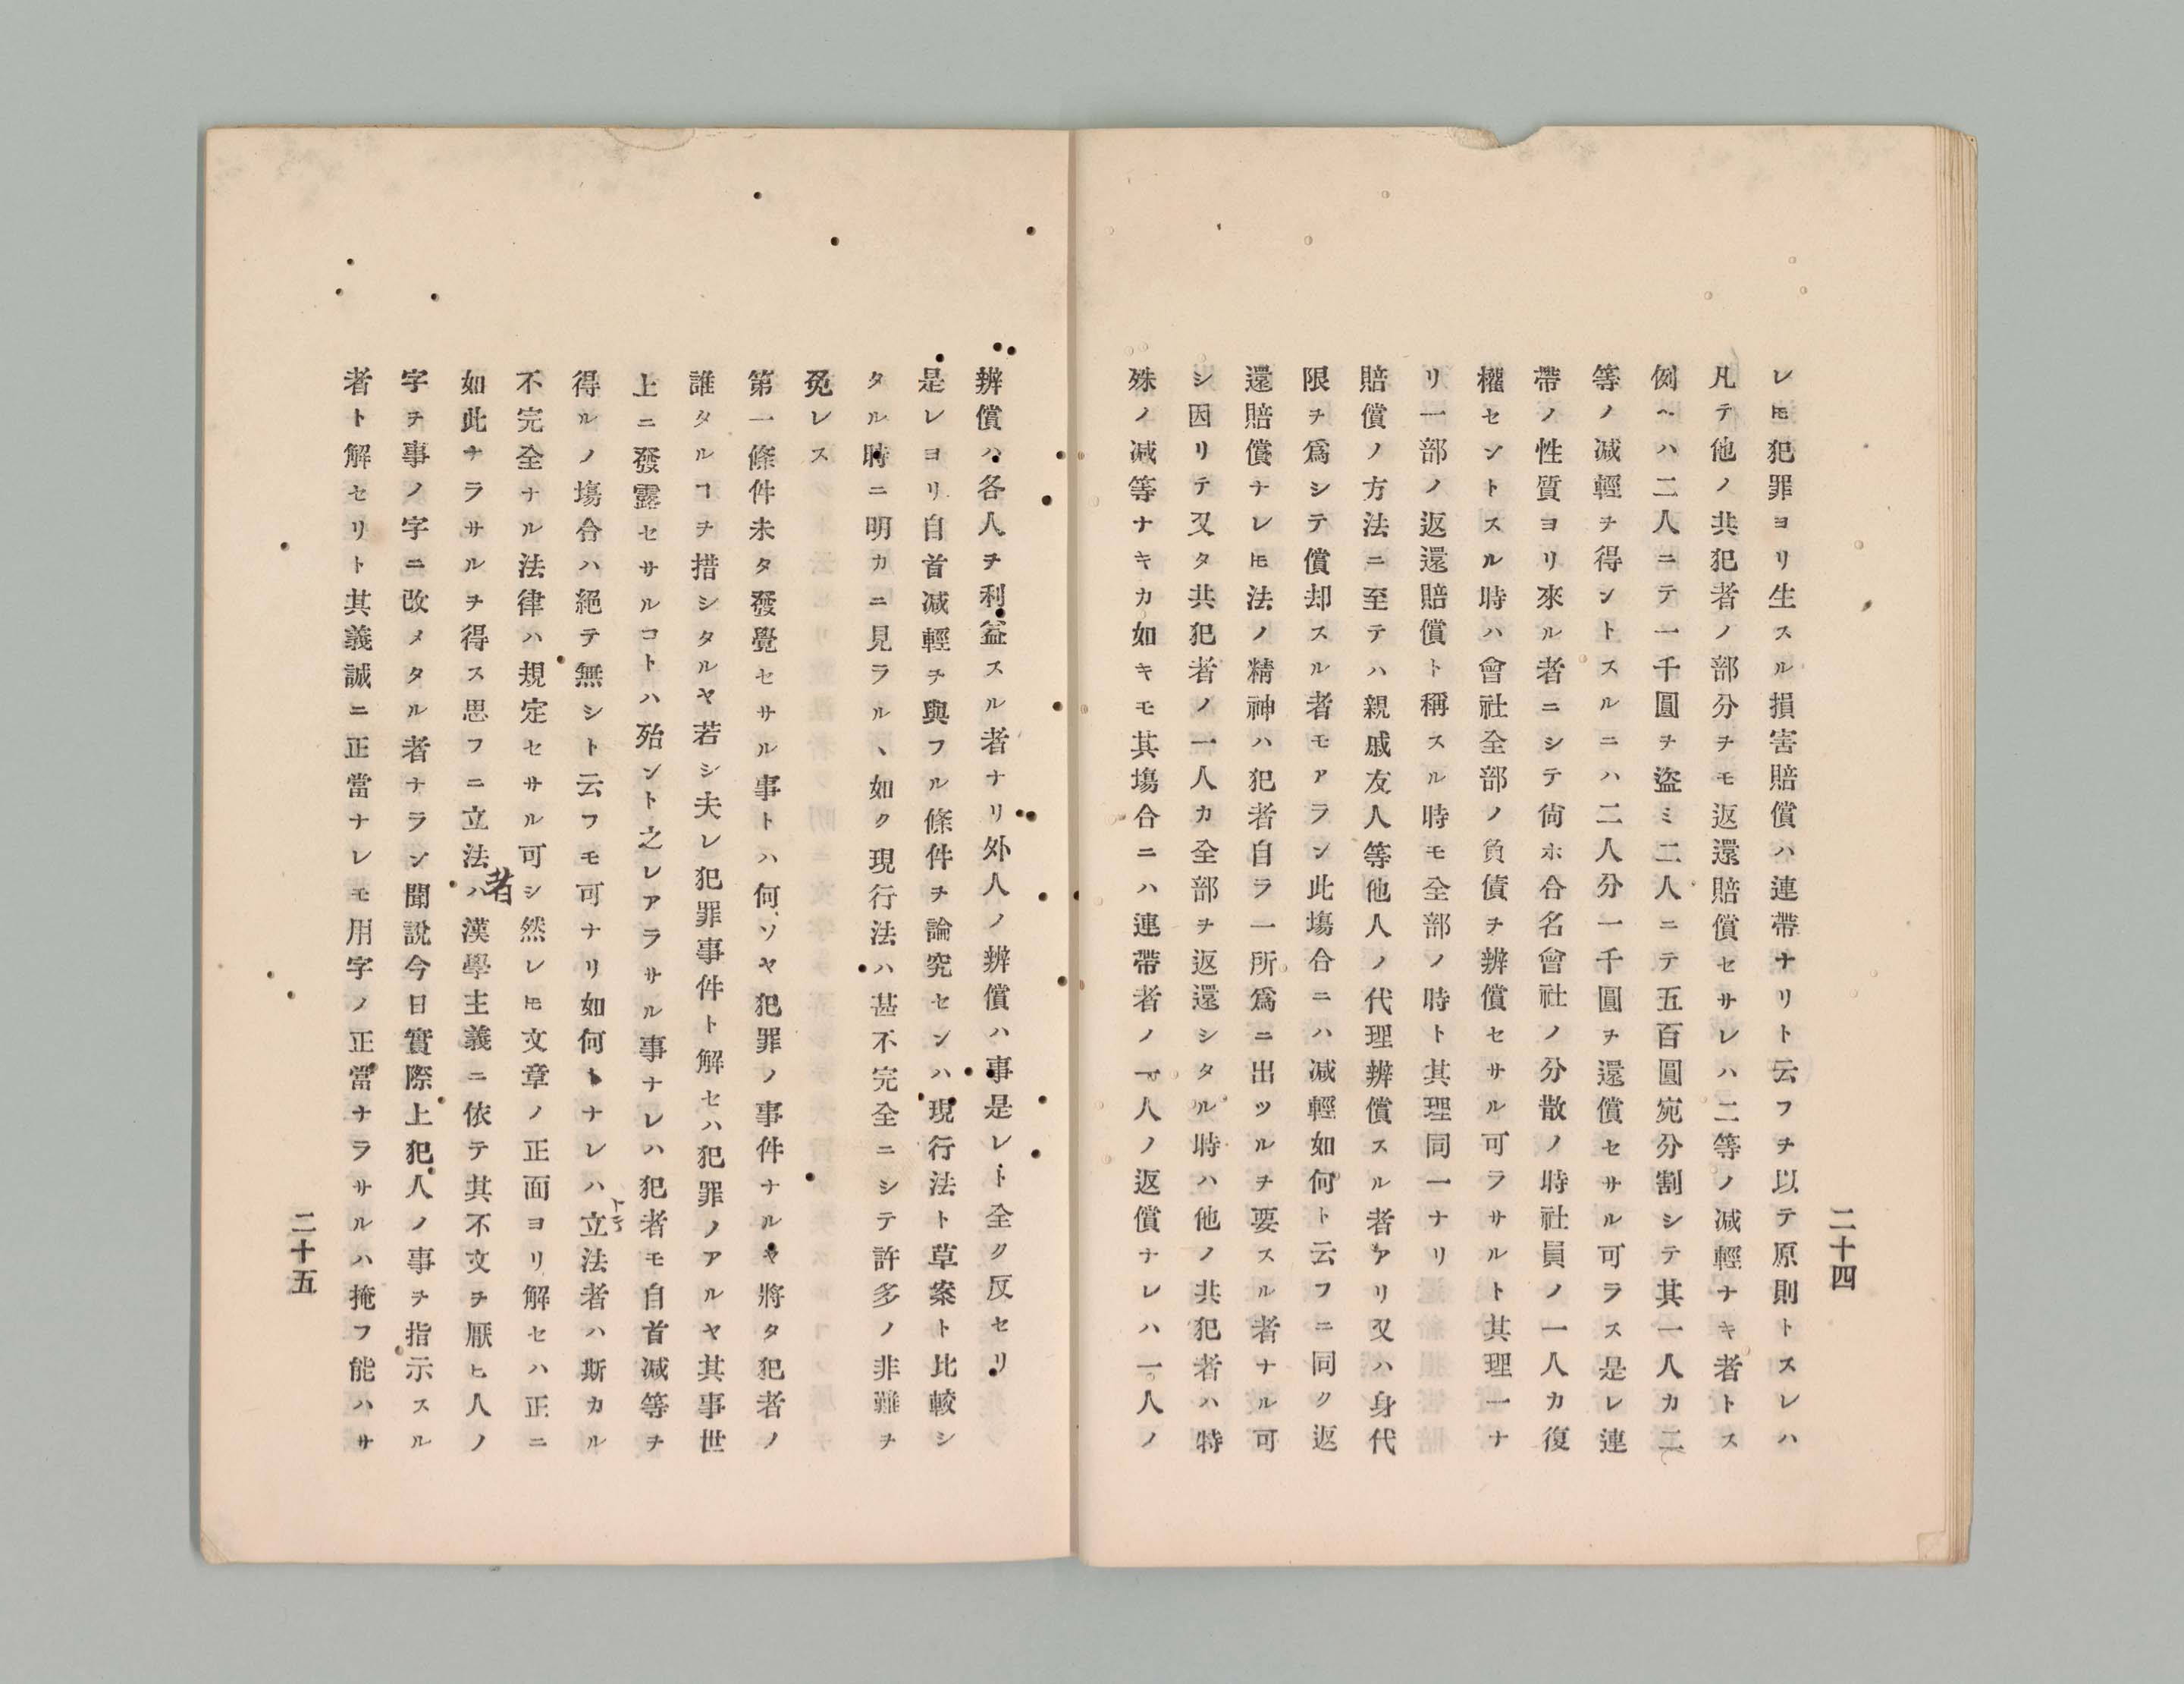 二十四
レ𪜈犯罪ヨリ生スル損害賠償ハ連帶ナリト云フヲ以テ原則トスレハ
凡テ他ノ共犯者ノ部分ヲモ返還賠償セサレハ二等ノ減輕ナキ者トス
例ヘハ二人ニテ一千圓ヲ盜ミ二人ニテ五百圓宛分割シテ其一人カ二
等ノ減輕ヲ得ントスルニハ二人分一千圓ヲ還償セサル可ラス是レ連
帶ノ性質ヨリ來ル者ニシテ尙ホ合名會社ノ分散ノ時社員ノ一人カ復
權セントスル時ハ會社全部ノ負債ヲ辨償セサル可ラサルト其理一ナ
リ一部ノ返還賠償ト稱スル時モ全部ノ時ト其理同一ナリ
賠償ノ方法ニ至テハ親戚友人等他人ノ代理辨償スル者アリ又ハ身代
限ヲ爲シテ償却スル者モアラン此塲合ニハ減輕如何ト云フニ同ク返
還賠償ナレ𪜈法ノ精神ハ犯者自ラ一所爲ニ出ツルヲ要スル者ナル可
シ因リテ又タ共犯者ノ一人カ全部ヲ返還シタル時ハ他ノ共犯者ハ特
殊ノ減等ナキカ如キモ其塲合ニハ連帶者ノ一人ノ返償ナレハ一人ノ
辨償ハ各人ヲ利益スル者ナリ外人ノ辨償ハ事是レト全ク反セリ
是レヨリ自首減輕ヲ與フル條件ヲ論究センハ現行法ト草案ト比較シ
タル時ニ明カニ見ラルヽ如ク現行法ハ甚不完全ニシテ許多ノ非難ヲ
免レス
第一條件未タ發覺セサル事トハ何ソヤ犯罪ノ事件ナルヤ將タ犯者ノ
誰タルヿヲ措シタルヤ若シ夫レ犯罪事件ト解セハ犯罪ノアルヤ其事世
上ニ發露セサルコトハ殆ント之レアラサル事ナレハ犯者モ自首減等ヲ
得ルノ塲合ハ絕テ無シト云フモ可ナリ如何トナレハ立法者ハ斯カル
不完全ナル法律ハ規定セサル可シ然レ𪜈文章ノ正面ヨリ解セハ正ニ
如此ナラサルヲ得ス思フニ立法者ハ漢學主義ニ依テ其不文ヲ厭ヒ人ノ
字ヲ事ノ字ニ改メタル者ナラン聞說今日實際上犯人ノ事ヲ指示スル
者ト解セリト其義誠ニ正當ナレモ用字ノ正當ナラサルハ掩フ能ハサ
二十五